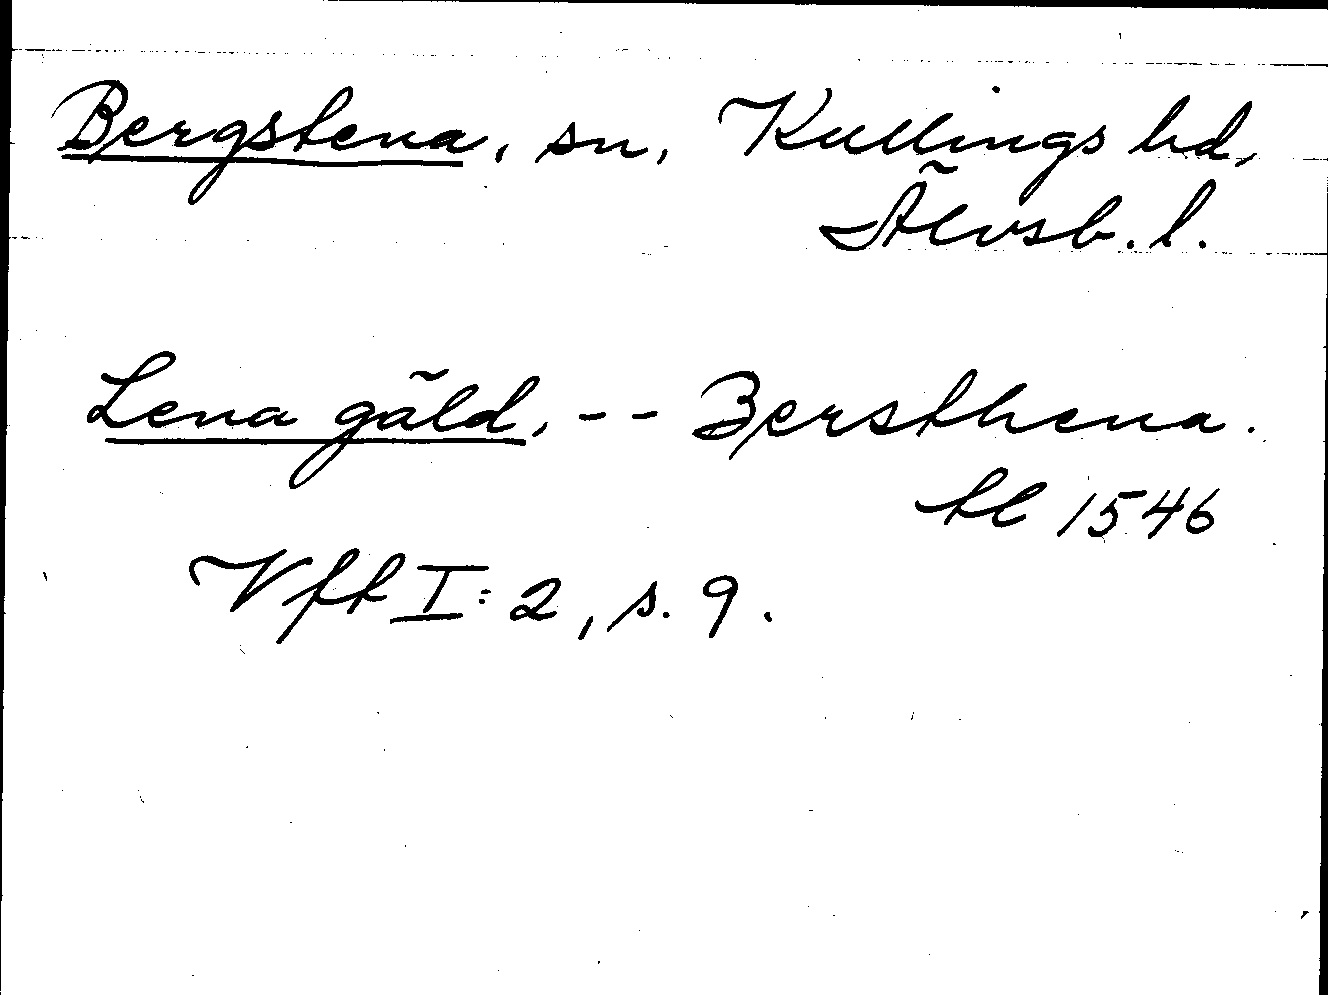 Bergstena, sn, Kullings hd,
Älvsb. l.
Lena gäld, -- Bersthena.
tl 1546
Vft I:2, s. 9.